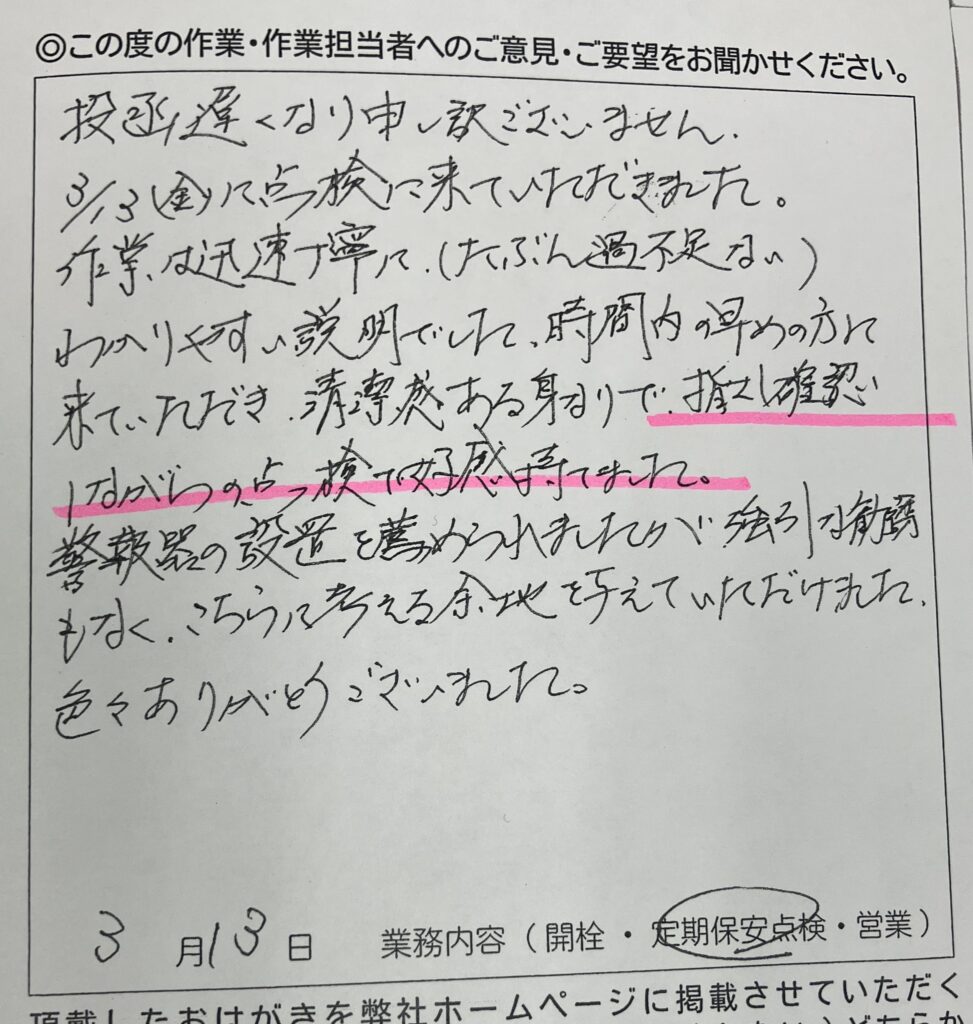 ◎この度の作業・作業担当者へのご意見・ご要望をお聞かせください。
投函遅くなり申し訳ございません.
3/13(金)に点検に来ていただきました。
作業は迅速丁寧に.(たぶん過不足ない)
わかりやすい説明でした、時間内の早めの方に
来ていただき.清潔感ある身なりで、指さし確認
しながらの点検で好感持てました。
警報器の設置を薦められましたが強引な勧誘
もなく.こちらに考える余地を与えていただけました.
色々ありがとうございました。
3月13日 業務内容(開栓・定期保安点検・営業)
頂戴したおはがきを弊社ホームページに掲載させていただく